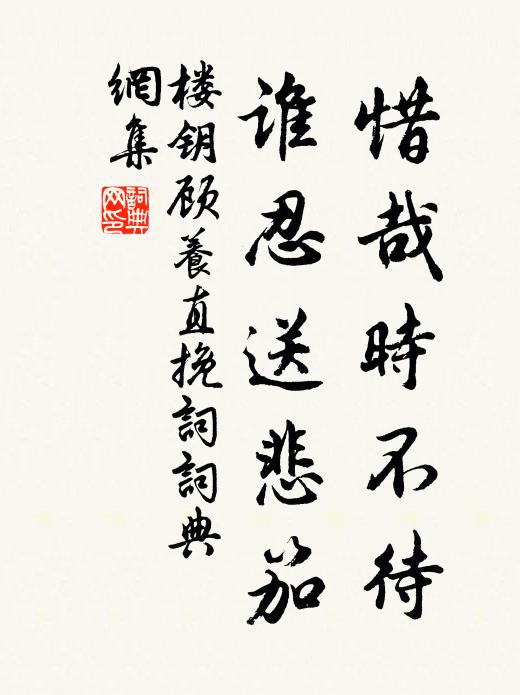 惜哉時不待
谁忍送悲笳
楼钥顾養直挽詞詞典
網集
詞典
网印